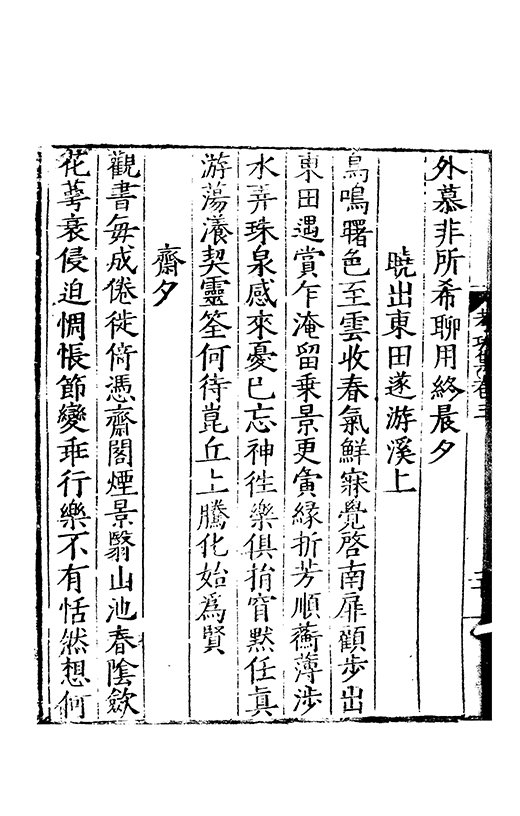 考功集卷三
外慕非所希聊用終晨夕
曉出東田遂游溪上
鳥鳴曙色至雲收春氣鮮寐覺啓南扉顧步出
東田遇賞乍淹留乘景更夤緣折芳順蘅薄涉
水弄珠泉感來憂已忘神徃樂俱捐窅默任真
游蕩瀁契靈筌何待崑丘上騰化始爲賢
齋夕
觀書每成倦徙倚憑齋閣煙景翳山池春陰歛
花萼衰侵迫惆悵節變乖行樂不有恬然想何